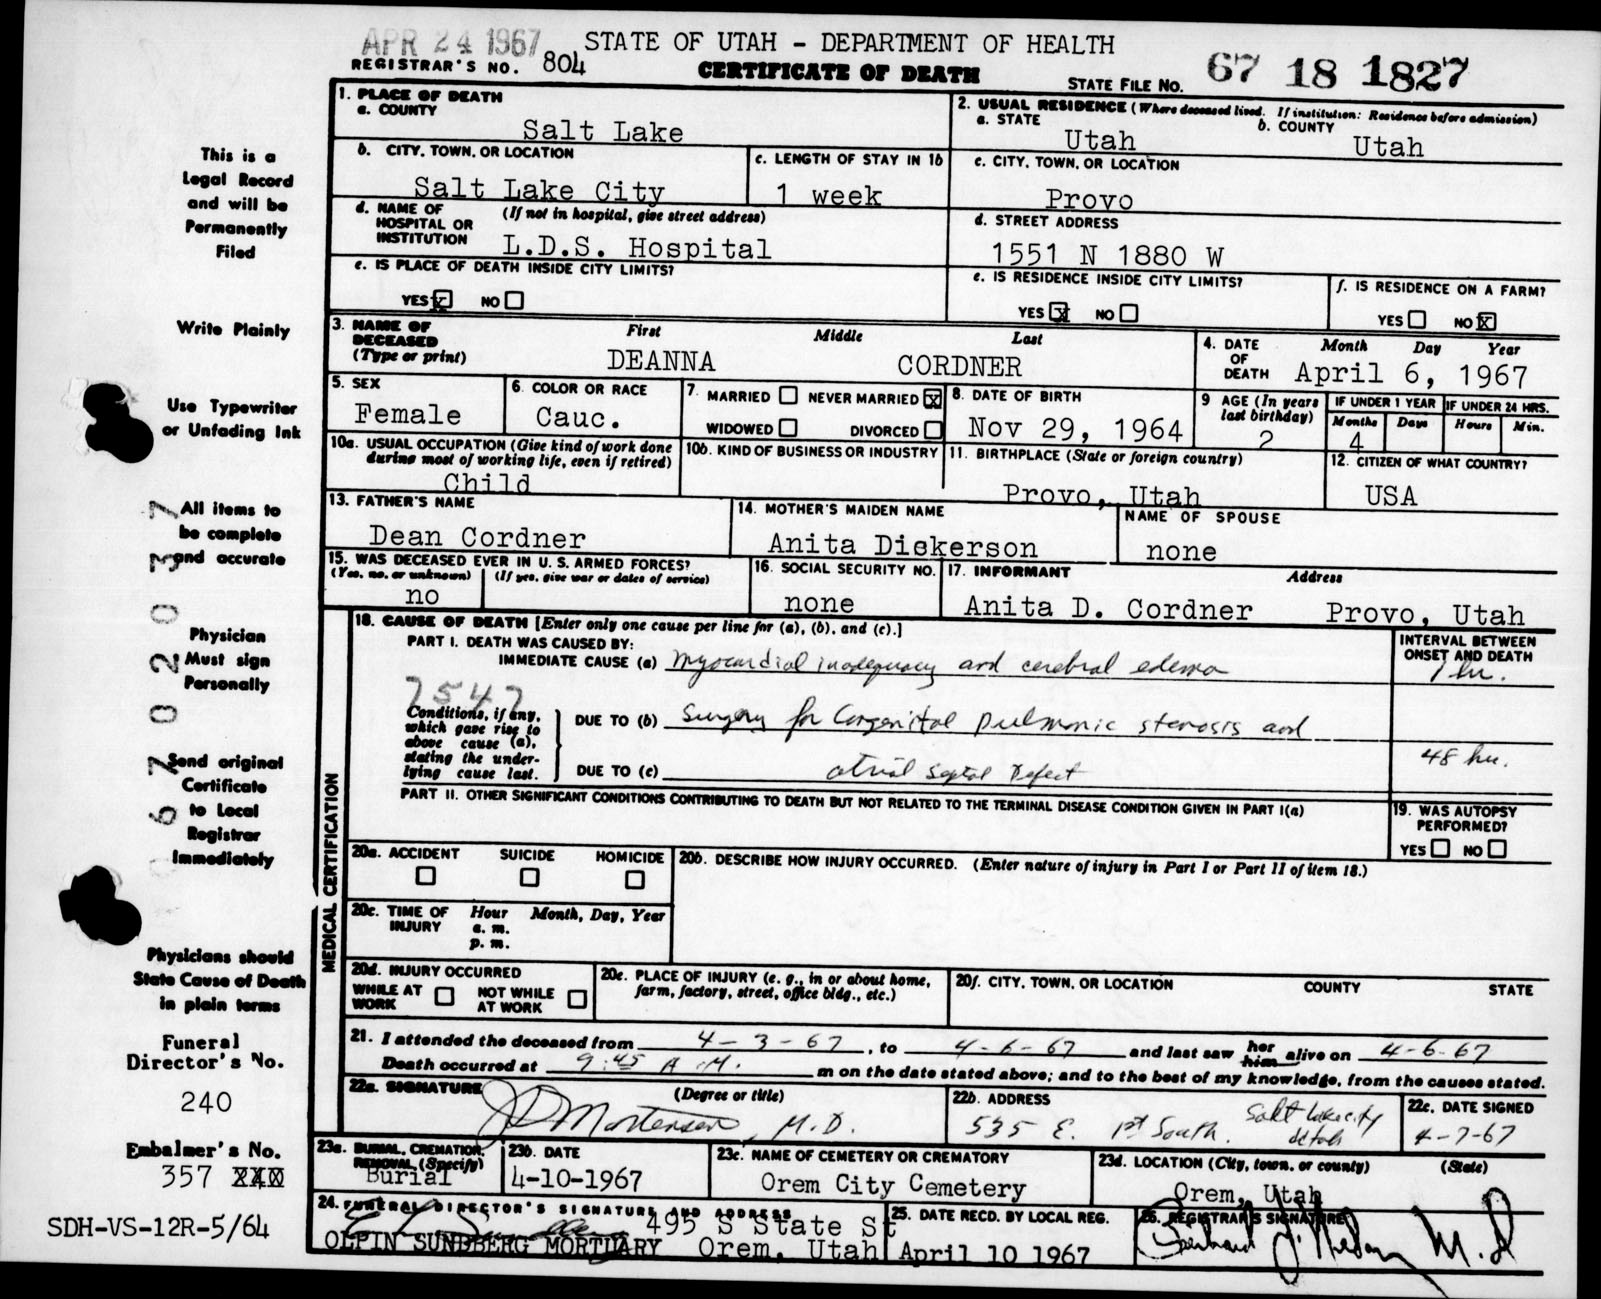 APR 24 1967
STATE OF UTAH - DEPARTMENT OF HEALTH
REGISTRAR'S NO. 804
CERTIFICATE OF DEATH
STATE FILE NO. 67 18 1827
This is a
Legal Record
and will be
Permanently
Filed
Write Plainly
Use Typewriter
or Unfading Ink
All items to
be complete
and accurate
Physician
Must sign
Personally
Send original
Certificate
to Local
Registrar
Immediately
Physicians should
State Cause of Death
in plain terms
Funeral
Director's No.
240
Embalmer's No.
357 240
SDH-VS-12R-5/64
067 020 37
1. PLACE OF DEATH
a. COUNTY
Salt Lake
2. USUAL RESIDENCE (Where deceased lived. If institution: Residence before admission)
a. STATE
Utah
b. COUNTY
Utah
b. CITY, TOWN, OR LOCATION
Salt Lake City
c. LENGTH OF STAY IN 1b
1 week
c. CITY, TOWN, OR LOCATION
Provo
d. NAME OF HOSPITAL OR INSTITUTION
(If not in hospital, give street address)
L.D.S. Hospital
d. STREET ADDRESS
1551 N 1880 W
e. IS PLACE OF DEATH INSIDE CITY LIMITS?
YES x NO
e. IS RESIDENCE INSIDE CITY LIMITS?
YES x NO
f. IS RESIDENCE ON A FARM?
YES NO x
3. NAME OF DECEASED (Type or print)
First Middle Last
DEANNA CORDNER
4. DATE OF DEATH
Month Day Year
April 6, 1967
5. SEX
Female
6. COLOR OR RACE
Cauc.
7. MARRIED NEVER MARRIED x
WIDOWED DIVORCED
8. DATE OF BIRTH
Nov 29, 1964
9 AGE (In years last birthday)
2
IF UNDER 1 YEAR
Months Days
4
IF UNDER 24 HRS.
Hours Min.
10a. USUAL OCCUPATION (Give kind of work done during most of working life, even if retired)
Child
10b. KIND OF BUSINESS OR INDUSTRY
11. BIRTHPLACE (State or foreign country)
Provo, Utah
12. CITIZEN OF WHAT COUNTRY?
USA
13. FATHER'S NAME
Dean Cordner
14. MOTHER'S MAIDEN NAME
Anita Dickerson
NAME OF SPOUSE
none
15. WAS DECEASED EVER IN U. S. ARMED FORCES?
(Yes, no, or unknown) (If yes, give war or dates of service)
no
16. SOCIAL SECURITY NO.
none
17. INFORMANT Address
Anita D. Cordner Provo, Utah
MEDICAL CERTIFICATION
18. CAUSE OF DEATH [Enter only one cause per line for (a), (b), and (c).]
PART I. DEATH WAS CAUSED BY:
IMMEDIATE CAUSE (a) Myocardial inadequacy and cerebral edema
INTERVAL BETWEEN ONSET AND DEATH
1 hr.
7547
Conditions, if any, which gave rise to above cause (a), stating the underlying cause last.
DUE TO (b) Surgery for Congenital pulmonic stenosis and
DUE TO (c) atrial septal defect
48 hr.
PART II. OTHER SIGNIFICANT CONDITIONS CONTRIBUTING TO DEATH BUT NOT RELATED TO THE TERMINAL DISEASE CONDITION GIVEN IN PART I(a)
19. WAS AUTOPSY PERFORMED?
YES NO
20a. ACCIDENT SUICIDE HOMICIDE
20b. DESCRIBE HOW INJURY OCCURRED. (Enter nature of injury in Part I or Part II of item 18.)
20c. TIME OF INJURY
Hour Month, Day, Year
a. m.
p. m.
20d. INJURY OCCURRED
WHILE AT WORK NOT WHILE AT WORK
20e. PLACE OF INJURY (e. g., in or about home, farm, factory, street, office bldg., etc.)
20f. CITY, TOWN, OR LOCATION COUNTY STATE
21. I attended the deceased from 4-3-67, to 4-6-67 and last saw her him alive on 4-6-67
Death occurred at 9:45 A.M. m on the date stated above; and to the best of my knowledge, from the causes stated.
22a. SIGNATURE (Degree or title)
Mortensen, M.D.
22b. ADDRESS
535 E. 1st South. Salt Lake City Utah
22c. DATE SIGNED
4-7-67
23a. BURIAL, CREMATION, REMOVAL (Specify)
Burial
23b. DATE
4-10-1967
23c. NAME OF CEMETERY OR CREMATORY
Orem City Cemetery
23d. LOCATION (City, town, or county) (State)
Orem, Utah
24. FUNERAL DIRECTOR'S SIGNATURE AND ADDRESS
495 S State St
OLPIN SUNDBERG MORTUARY Orem, Utah
25. DATE RECD. BY LOCAL REG.
April 10 1967
26. REGISTRAR'S SIGNATURE
M.D